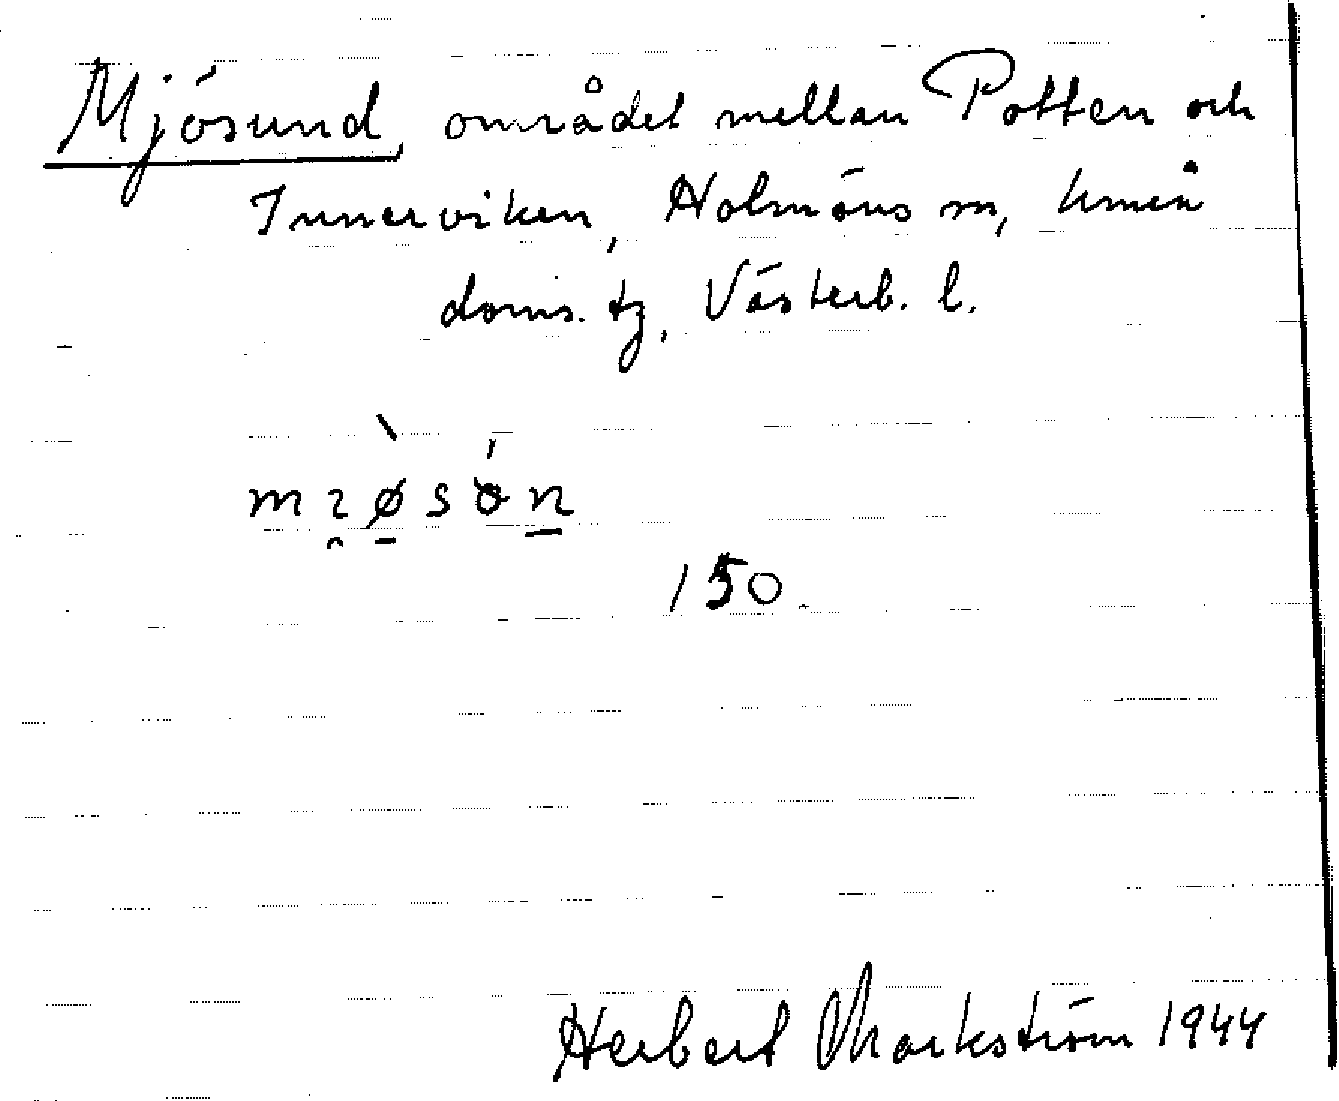 Mjösund, området mellan Potten och
Innerviken, Holmöns sn, Umeå
doms. tg, Västerb. l.
mɿøsòn
150.
Herbert Markström 1944